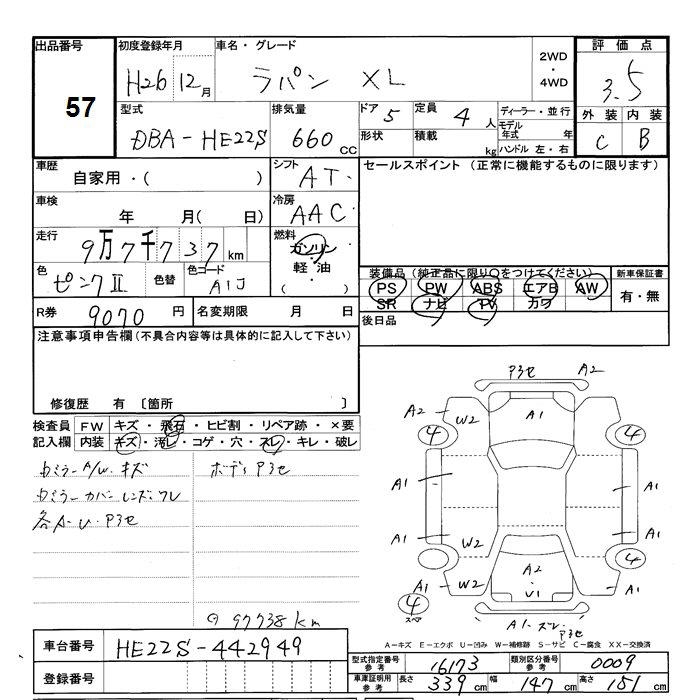 出品番号
57
初度登録年月
H26 12月
車名・グレード
ラパン XL
2WD
・
4WD
評価点
3.5
外装 内装
C B
型式
DBA-HE22S
排気量
660cc
ドア 5
定員 4人
形状
積載 kg
ディーラー・並行
モデル年式 年
ハンドル 左・右
車歴
自家用・( )
シフト
AT
セールスポイント (正常に機能するものに限ります)
車検
年 月( 日)
冷房
AAC
走行
9万7千737km
燃料
ガソリン
・
軽油
・
( )
色
ピンクII
色替
色コード
A1J
装備品(純正品に限り○をつけてください)
PS PW ABS エアB AW
SR ナビ TV カワ
新車保証書
有・無
R券
9070円
名変期限 月 日
後日品
注意事項申告欄(不具合内容等は具体的に記入して下さい)
修復歴 有 [箇所 ]
検査員記入欄
FW キズ・飛石・ヒビ割・リペア跡・×要
内装 キズ・汚レ・コゲ・穴・スレ・キレ・破レ
ボディ
キズ
A2
A2 W2 A1
4 4
A1 A1
A1 W2 A1
A2
4
A1 W2 V1 A1
4 スペア
A1・スレ
97738km
A-キズ E-エクボ U-凹み W-補修跡 S-サビ C-腐食 XX-交換済
車台番号
HE22S-442949
登録番号
型式指定番号 参考 16173
類別区分番号 参考 0009
車庫証明用 参考
長さ 339cm 幅 147cm 高さ 151cm